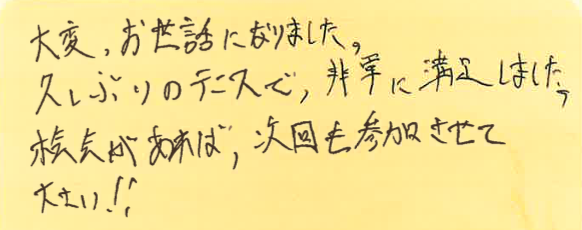 大変,お世話になりました。
久しぶりのテニスで,非常に満足しました。
機会があれば,次回も参加させて
下さい!!